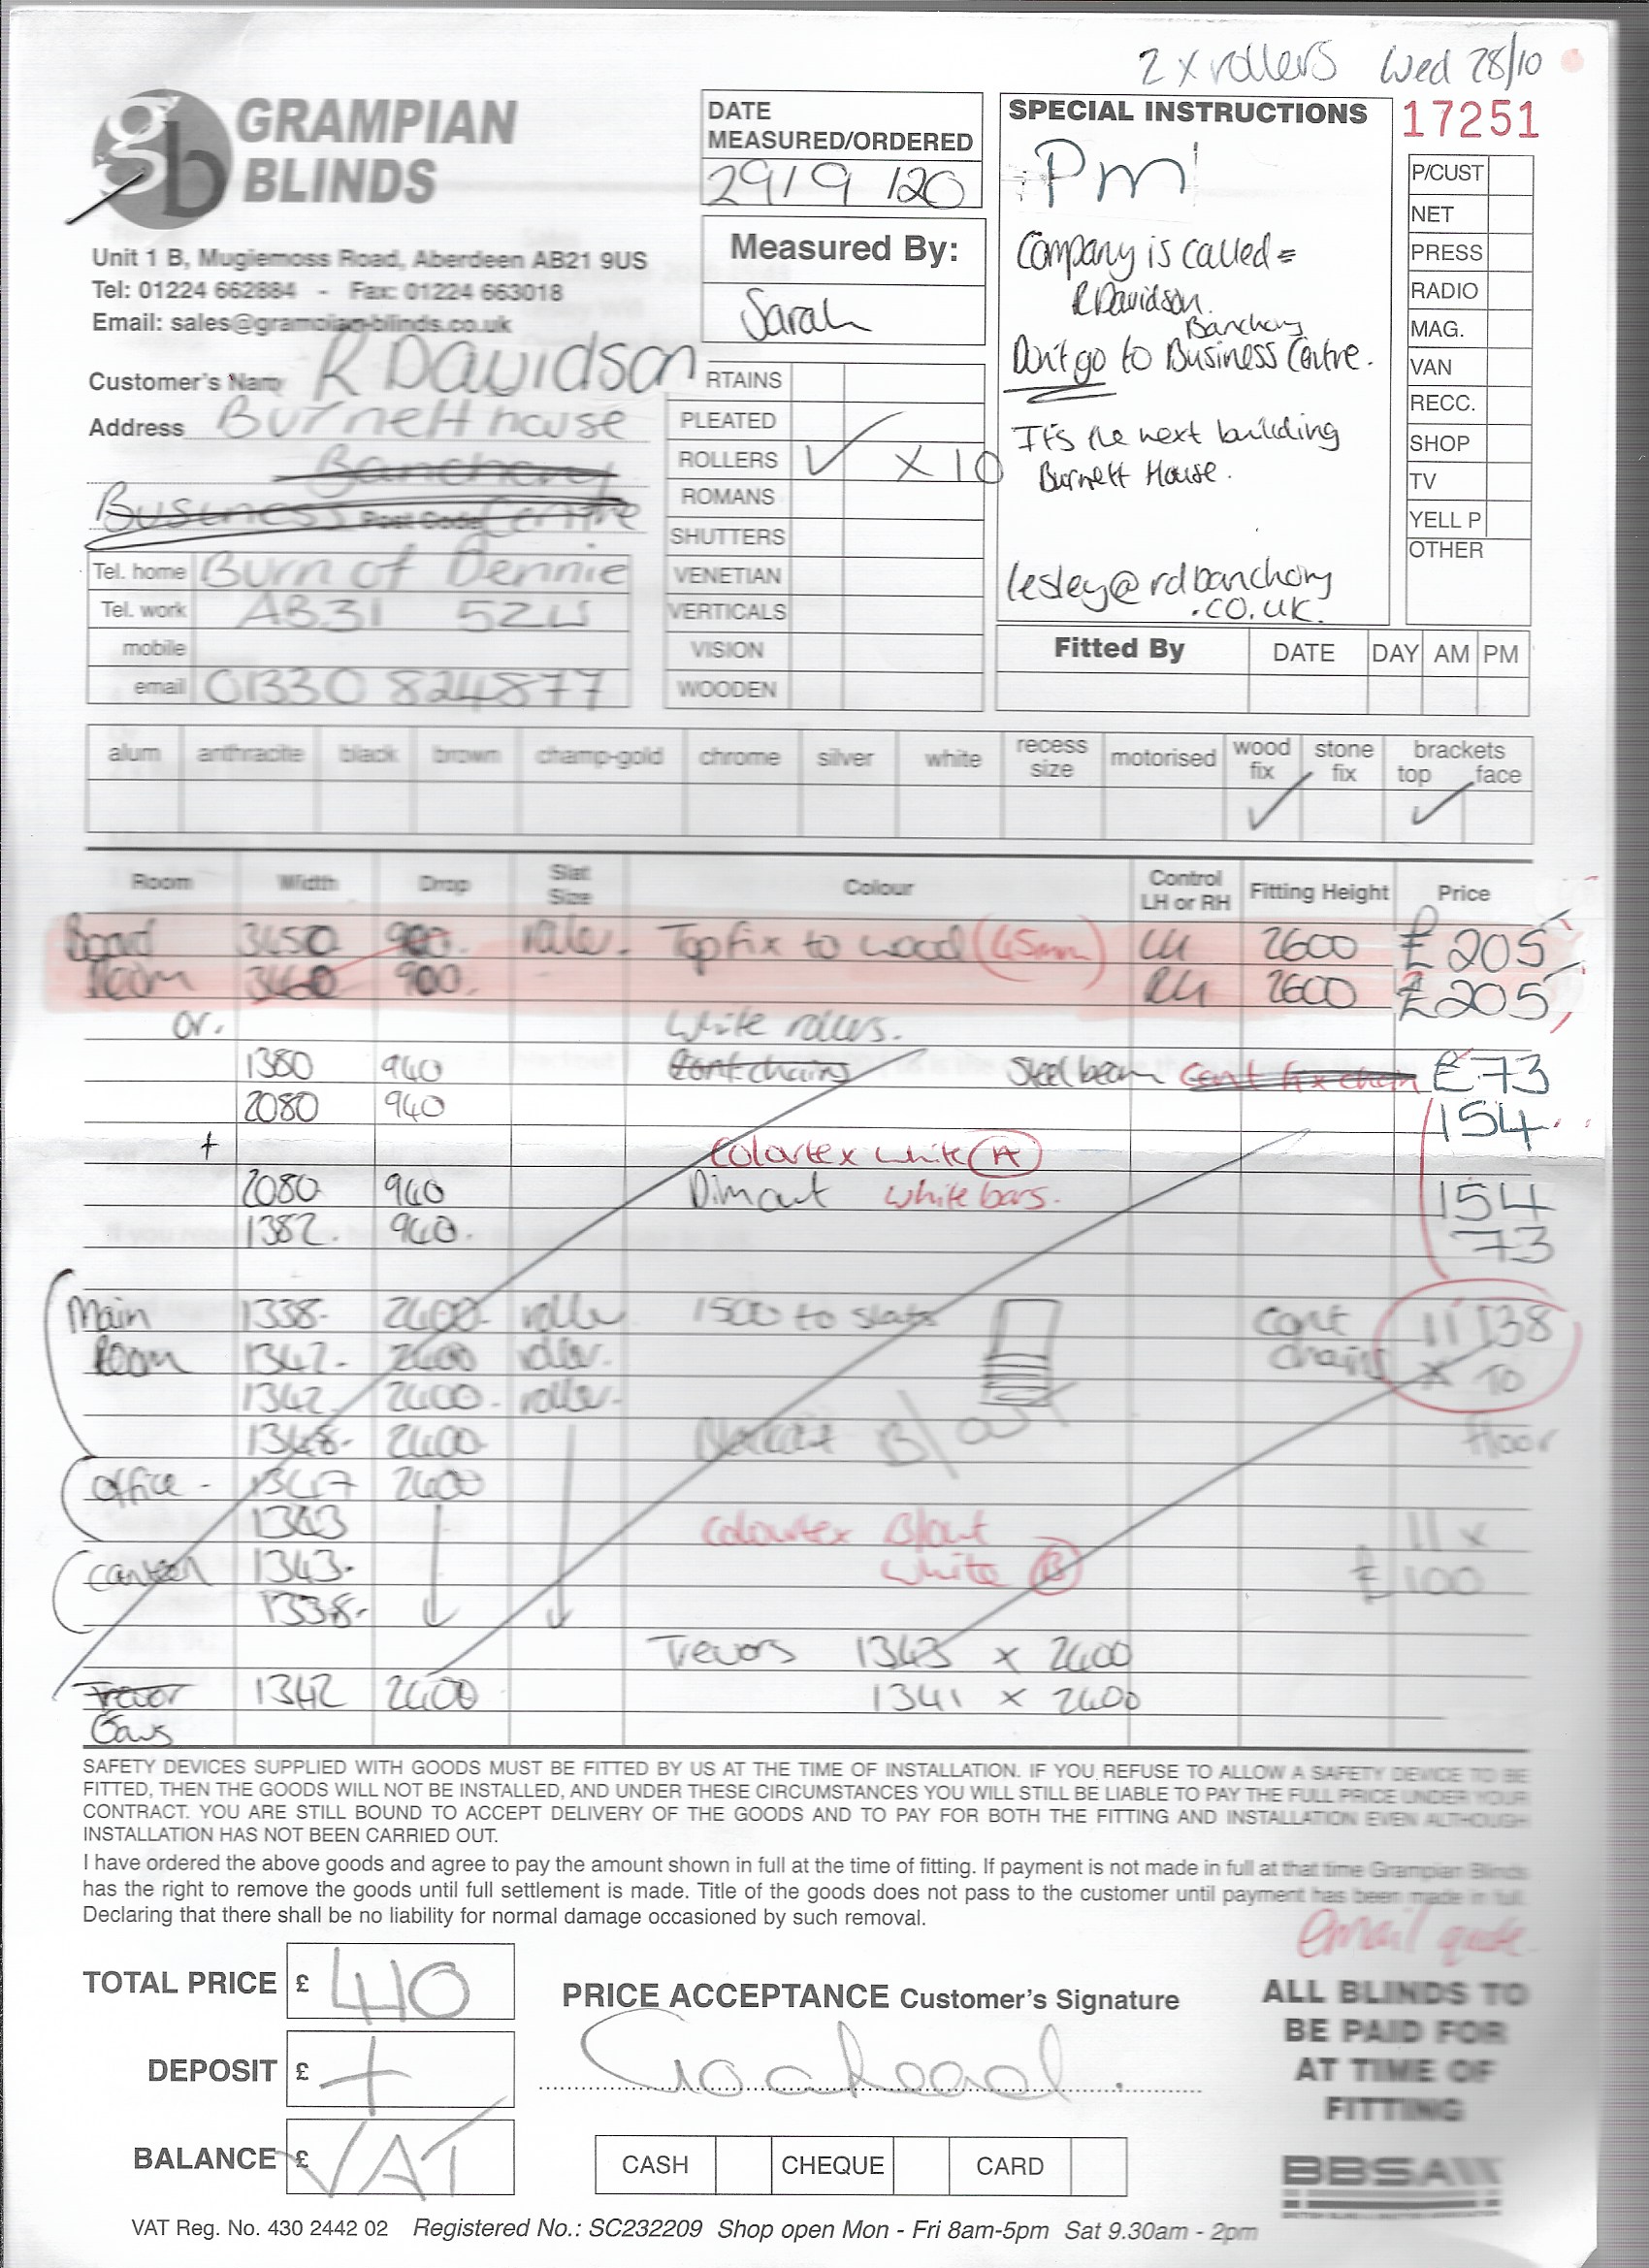 2 x rollers Wed 28/10
gb GRAMPIAN BLINDS
Unit 1 B, Mugiemoss Road, Aberdeen AB21 9US
Tel: 01224 662884 - Fax: 01224 663018
Email: sales@grampian-blinds.co.uk
DATE
MEASURED/ORDERED
29/9/20
Measured By:
Sarah
SPECIAL INSTRUCTIONS
Pm
Company is called =
R Davidson.
Banchory
Don't go to Business Centre.
It's the next building
Burnett House.
lesley@rdbanchory
.co.uk.
17251
P/CUST
NET
PRESS
RADIO
MAG.
VAN
RECC.
SHOP
TV
YELL P
OTHER
Customer's Nam R Davidson
Address Burnett house
Banchory
Business Centre
Post Code
Tel. home Burn of Bennie
Tel. work AB31 5ZU
mobile
email 01330 824877
RTAINS
PLEATED
ROLLERS ✓ x 10
ROMANS
SHUTTERS
VENETIAN
VERTICALS
VISION
WOODEN
Fitted By DATE DAY AM PM
alum anthracite black brown champ-gold chrome silver white recess size motorised wood fix stone fix brackets top face
✓ ✓
Room Width Drop Slat Size Colour Control LH or RH Fitting Height Price
Board 3450 900. roller. Top fix to wood (45mm) LH 2600 £205
Room 3460 900. RH 2600 £205
or. White rollers.
1380 940 Cont chains Steel beam Cont fix chain £73
2080 940 154
+ Colortex white (A)
2080 940 Dimout white bars. 154
1382. 940. 73
Main 1338. 2400. roller 1500 to slats Cont 11 138
Room 1342. 2400 roller. chains x 10
1342 2400. roller.
1348. 2400 Blackout B/out floor
Office - 1347 2400
1343 Colourtex B/out 11 x
Canteen 1343. White (B) £100
1338.
Trevors 1343 x 2400
Trevor 1342 2400 1341 x 2400
Gavs
SAFETY DEVICES SUPPLIED WITH GOODS MUST BE FITTED BY US AT THE TIME OF INSTALLATION. IF YOU REFUSE TO ALLOW A SAFETY DEVICE TO BE
FITTED, THEN THE GOODS WILL NOT BE INSTALLED, AND UNDER THESE CIRCUMSTANCES YOU WILL STILL BE LIABLE TO PAY THE FULL PRICE UNDER YOUR
CONTRACT. YOU ARE STILL BOUND TO ACCEPT DELIVERY OF THE GOODS AND TO PAY FOR BOTH THE FITTING AND INSTALLATION EVEN ALTHOUGH
INSTALLATION HAS NOT BEEN CARRIED OUT.
I have ordered the above goods and agree to pay the amount shown in full at the time of fitting. If payment is not made in full at that time Grampian Blinds
has the right to remove the goods until full settlement is made. Title of the goods does not pass to the customer until payment has been made in full.
Declaring that there shall be no liability for normal damage occasioned by such removal.
email quote
TOTAL PRICE £ 410
DEPOSIT £ +
BALANCE £ VAT
PRICE ACCEPTANCE Customer's Signature
Goahead.
CASH CHEQUE CARD
ALL BLINDS TO
BE PAID FOR
AT TIME OF
FITTING
BBSA
VAT Reg. No. 430 2442 02 Registered No.: SC232209 Shop open Mon - Fri 8am-5pm Sat 9.30am - 2pm